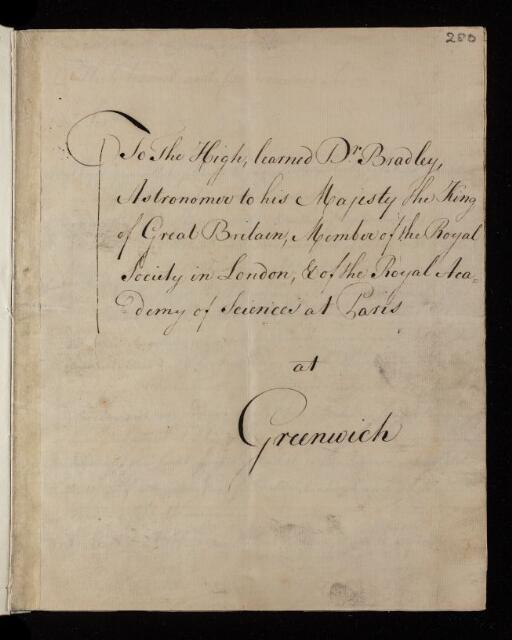 280
To The High, learned Dr. Bradley,
Astronomer to his Majesty the King
of Great Britain, Member of the Royal
Society in London, & of the Royal Aca=
=demy of Sciences at Paris
at
Greenwich